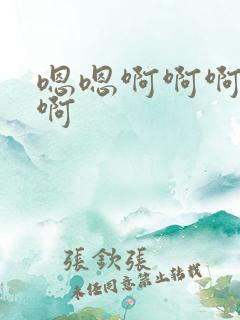 嗯嗯啊啊啊
啊
張欽張
未经同意禁止转载